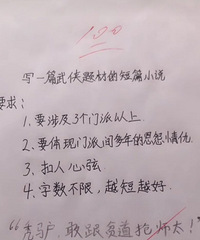 100
写一篇武侠题材的短篇小说
要求：
1、要涉及3个门派以上.
2、要体现门派间多年的恩怨情仇
3、扣人心弦
4、字数不限，越短越好.
“秃驴，敢跟贫道抢师太！”